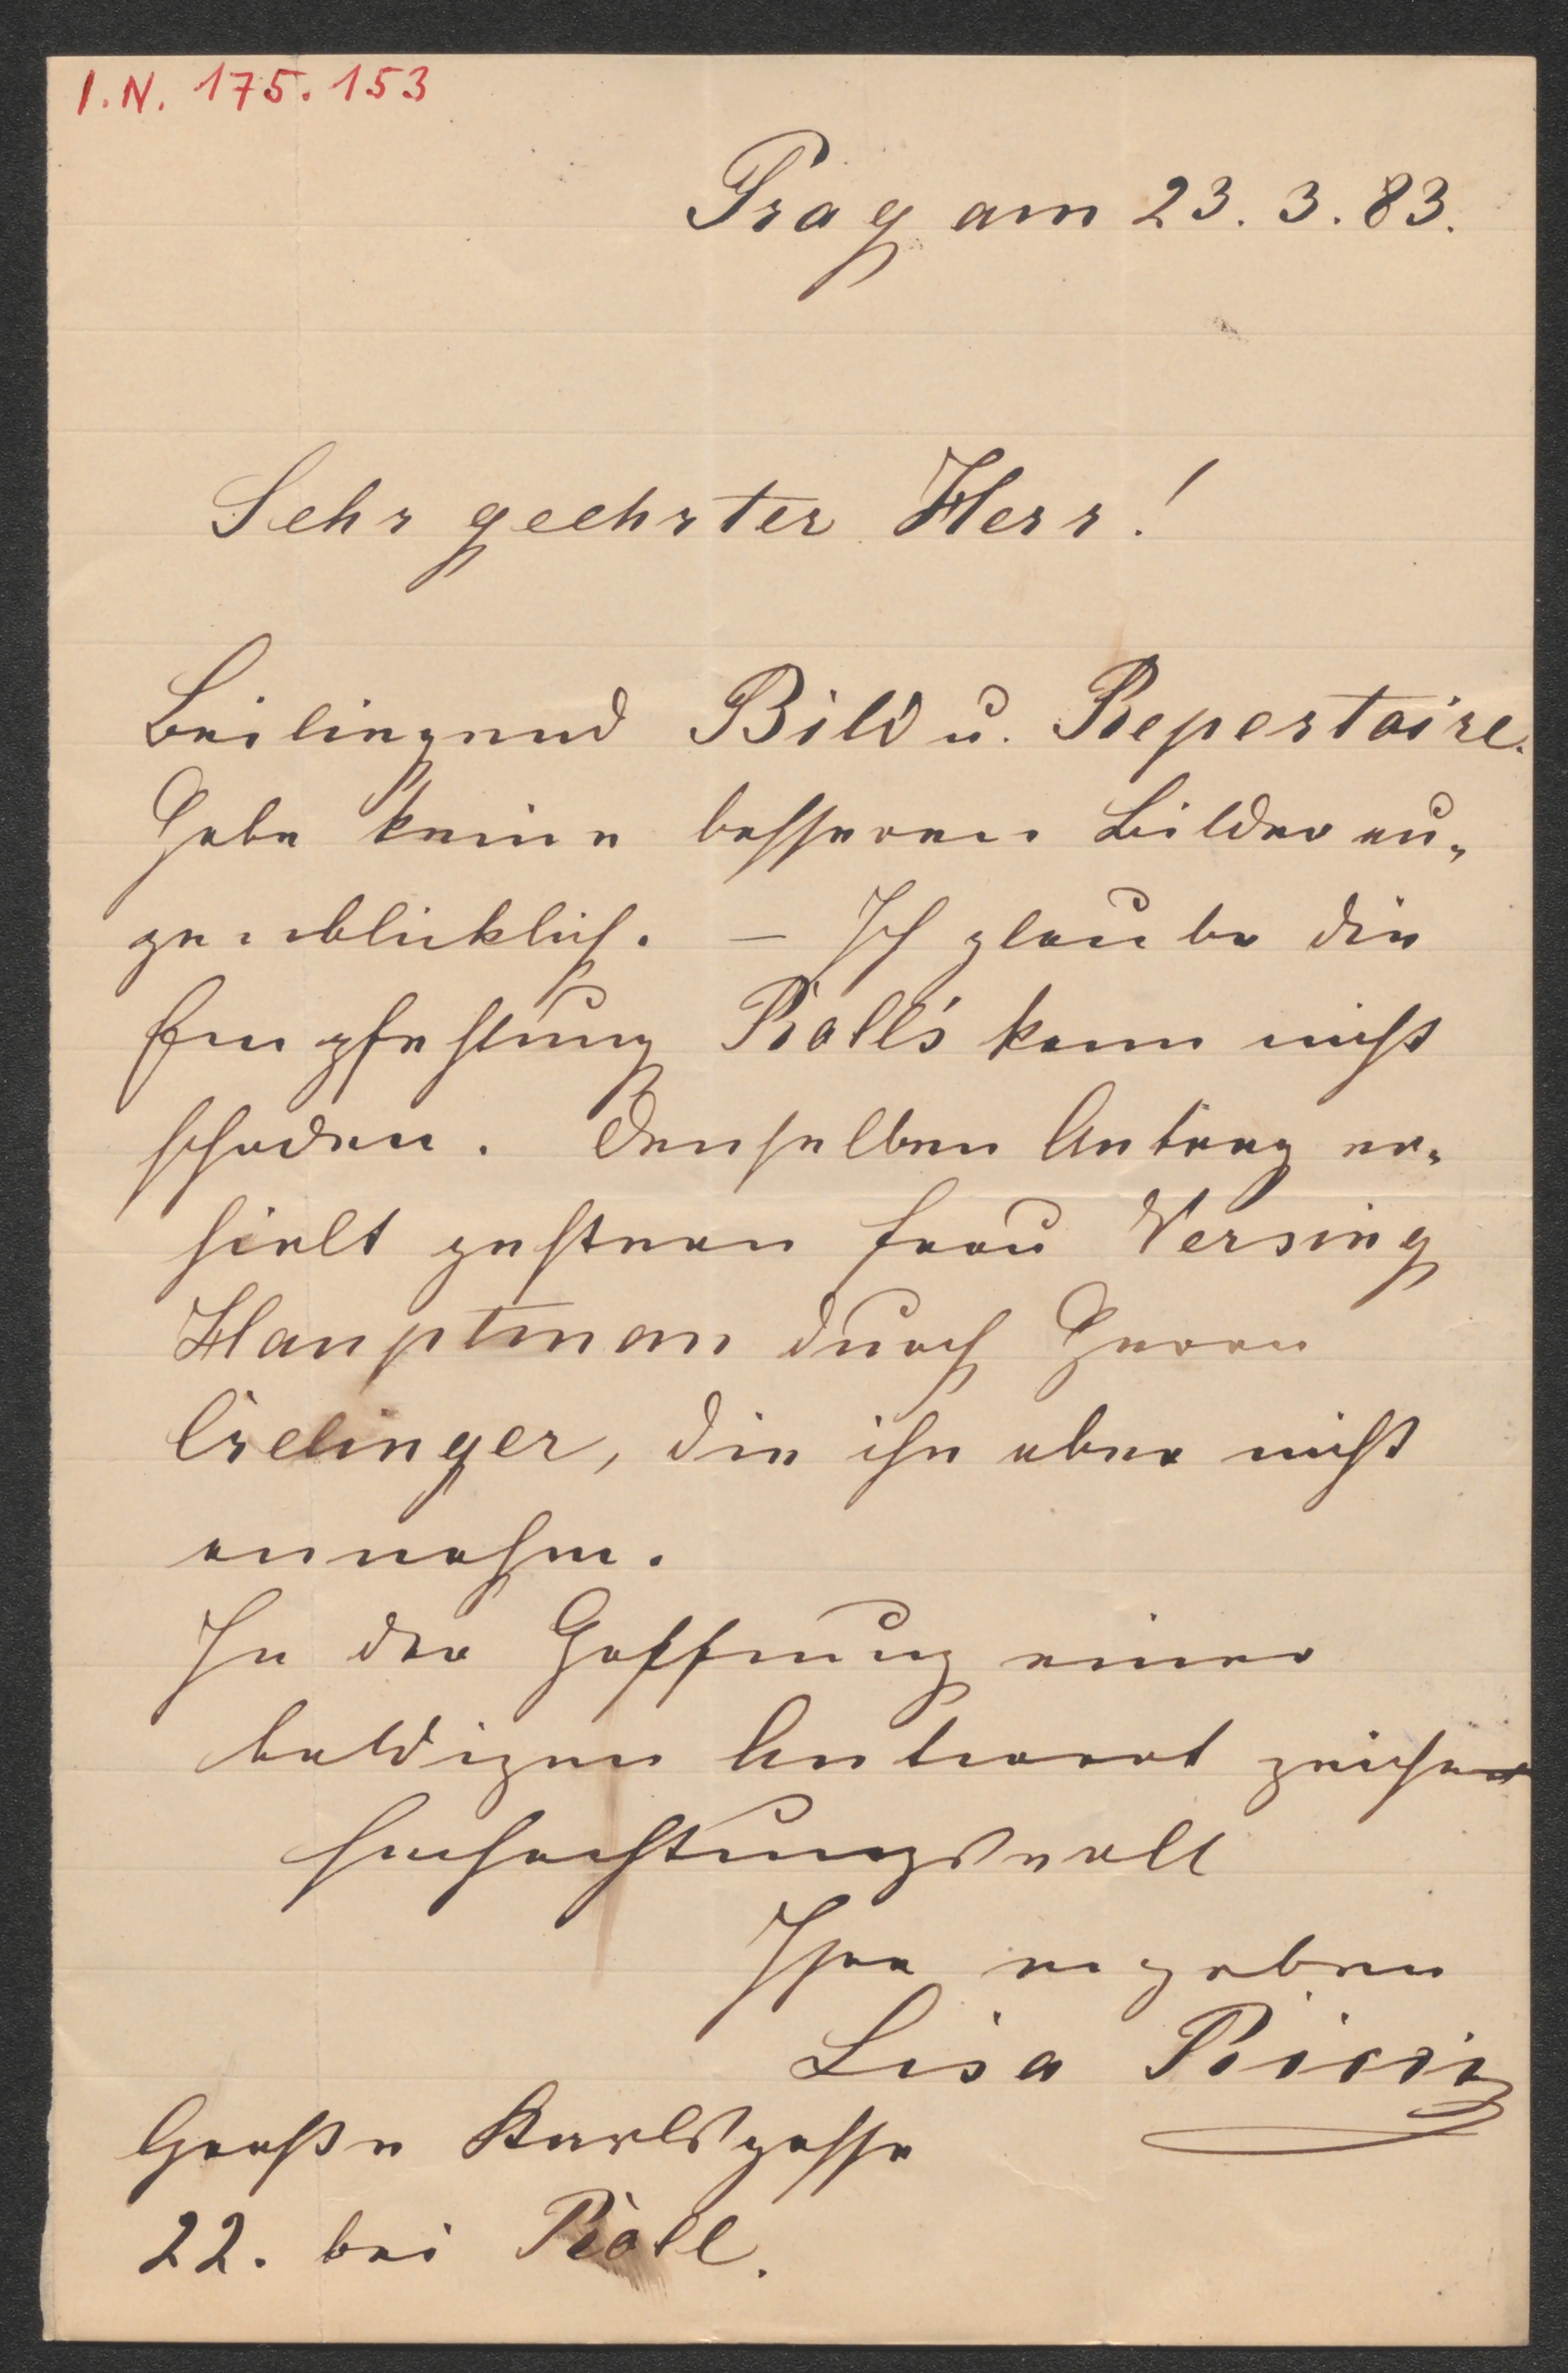 I.N. 175.153
Prag am 23. 3. 83.
Sehr geehrter Herr!
Beiliegend Bild u. Repertoire.
Habe keine besseren Bilder au-
genblicklich. — Ich glaube die
Empfehlung Roll's kann nicht
schaden. Denselben Antrag er-
hielt gestern Frau Versing
Hauptman durch Herrn
Crelinger, die ihn aber nicht
annahm.
In der Hoffnung einer
baldigen Antwort zeichne
hochachtungsvoll
Ihre ergeben
Lisa
Große Karlsgasse
22. bei Roll.